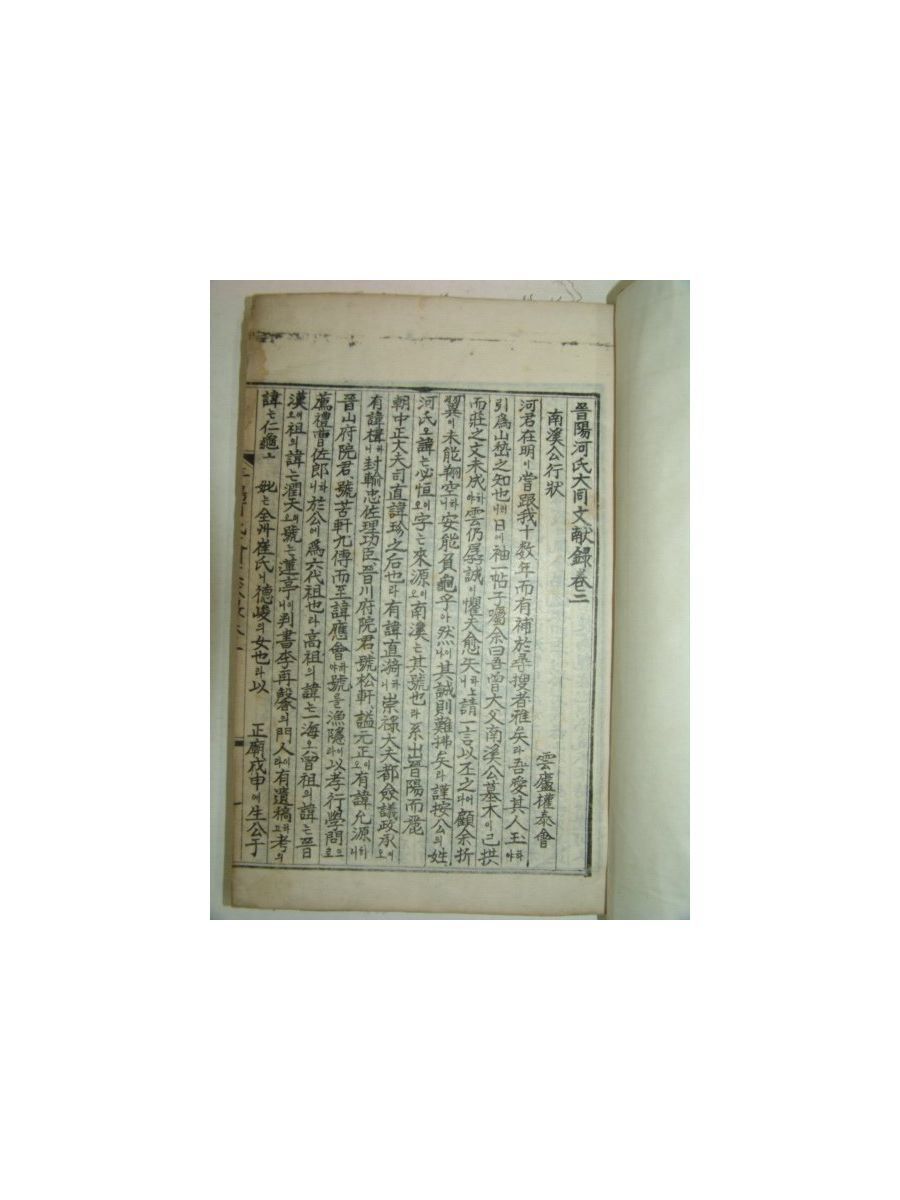 晉陽河氏大同文献錄卷二
南溪公行狀
雲廬權泰會
河君在明이嘗跟我十数年而有補於尋搜者雅矣라吾愛其人玉하야
引爲山之知也러니日에袖一帖子囑余曰吾曾大父南溪公墓木이已拱
而莊之文未成하야雲仍孱誠이懼天愈矣니請一言以丕之어다顧余折
翼이未能翔空하니安能負龜乎아然이나其誠則難拂矣라謹按公의姓
河氏오諱는必恒이오字는來源이오南溪는其號也라系出晉陽而麗
朝中正大夫司直諱珍之后也라有諱直漪하니崇祿大夫都僉議政承이오
有諱楫하니封輸忠佐理功臣晉川府院君號松軒謚元正이오有諱允源하니
晉山府院君號苦軒九傳而至諱應會하야號를漁隱이라以孝行學問으로
薦禮曹佐郎하니於公에爲六代祖也라高祖의諱는一海오曾祖의諱는晉
漢오祖의諱는潤天오號는蓮亭니判書李再馨의門人라有遺稿하고考의
諱는仁龜오妣는全州崔氏니德峻의女也라以
正廟戊申에生公于